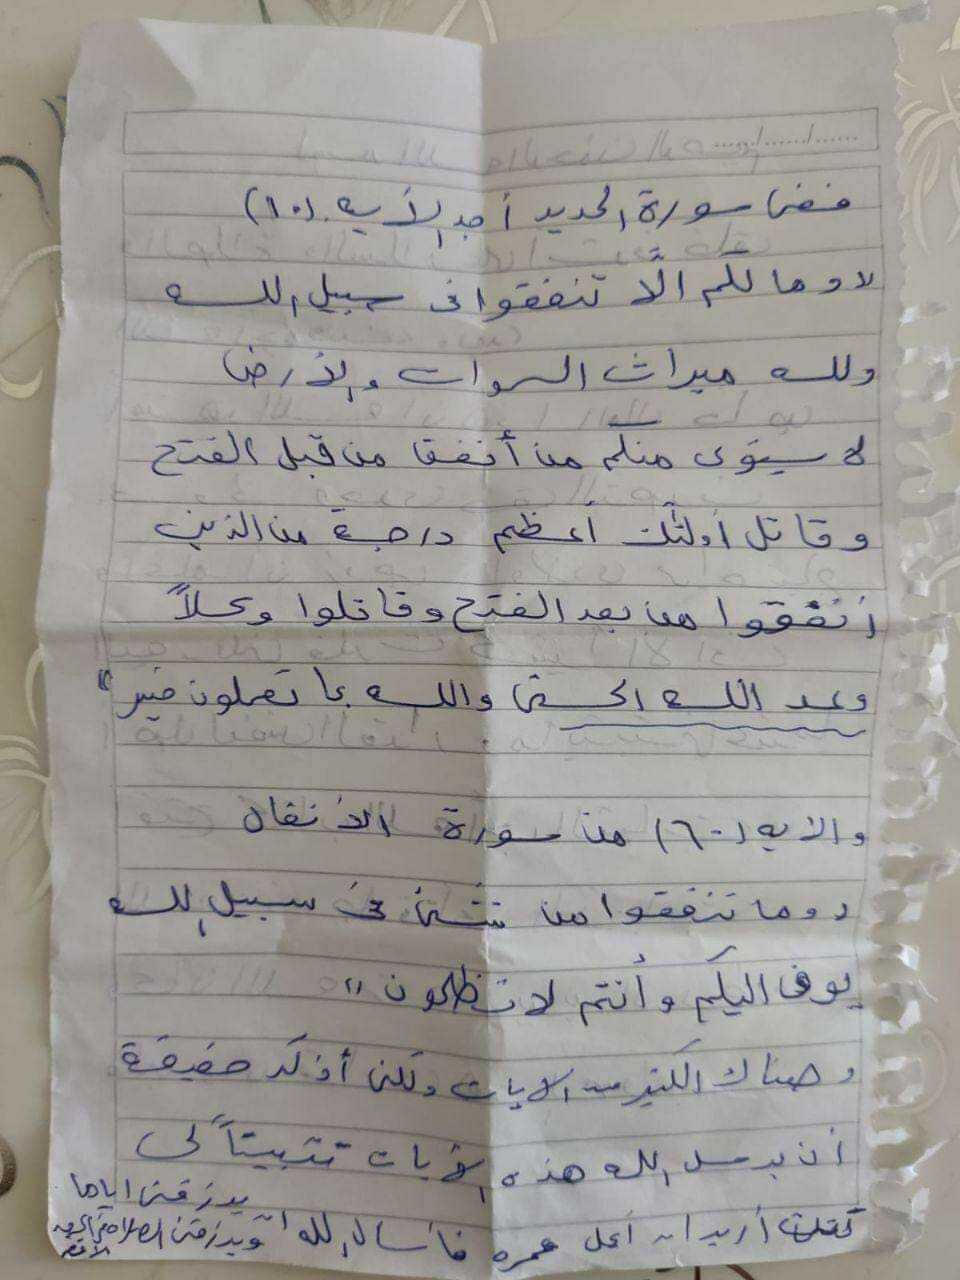 ففى سورة الحديد أجد الآية (١٠)
" وما لكم ألَّا تنفقوا فى سبيل الله
ولله ميراث السموات والأرض
لا يستوى منكم من أنفق من قبل الفتح
وقاتل أولئك أعظم درجة من الذين
أنفقوا من بعد الفتح وقاتلوا وكلاً
وعد الله الحسنى والله بما تعملون خبير "
والآيه (٦٠) من سورة الأنفال
" وما تنفقوا من شئ فى سبيل الله
يوف اليكم وأنتم لا تظلمون "
وهناك الكثير من الآيات ولكن أذكر حقيقة
أن يرسل الله هذه الآيات تثبيتاً لى
كنت أريد ان أعمل عمره فأسأل الله أن يرزقنى اياها
ويرزقنى الصلاة فى